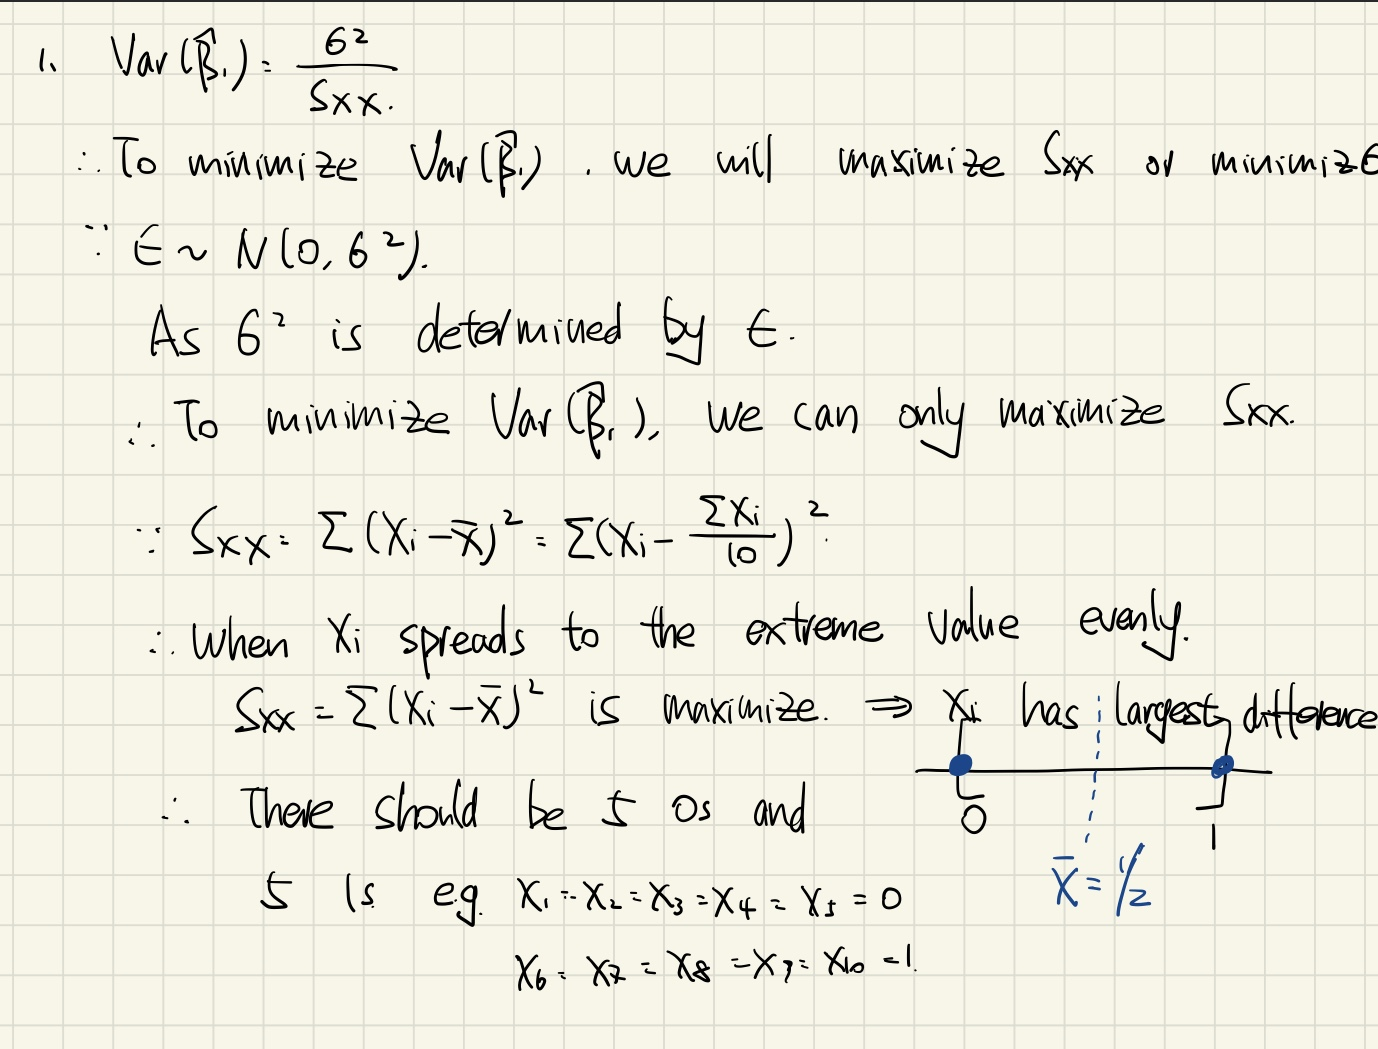 1. Var(β̂₁) = σ² / Sxx.
∴ To minimize Var(β̂₁), we will maximize Sxx or minimize σ
∵ ε ~ N(0, σ²).
As σ² is determined by ε.
∴ To minimize Var(β̂₁), we can only maximize Sxx.
∵ Sxx = Σ(Xi - x̄)² = Σ(Xi - ΣXi/10)².
∴ When Xi spreads to the extreme value evenly.
Sxx = Σ(Xi - x̄)² is maximize. ⇒ Xi has largest difference
∴ There should be 5 0s and
0 1
5 1s e.g. X₁ = X₂ = X₃ = X₄ = X₅ = 0
x̄ = 1/2
X₆ = X₇ = X₈ = X₉ = X₁₀ = 1.